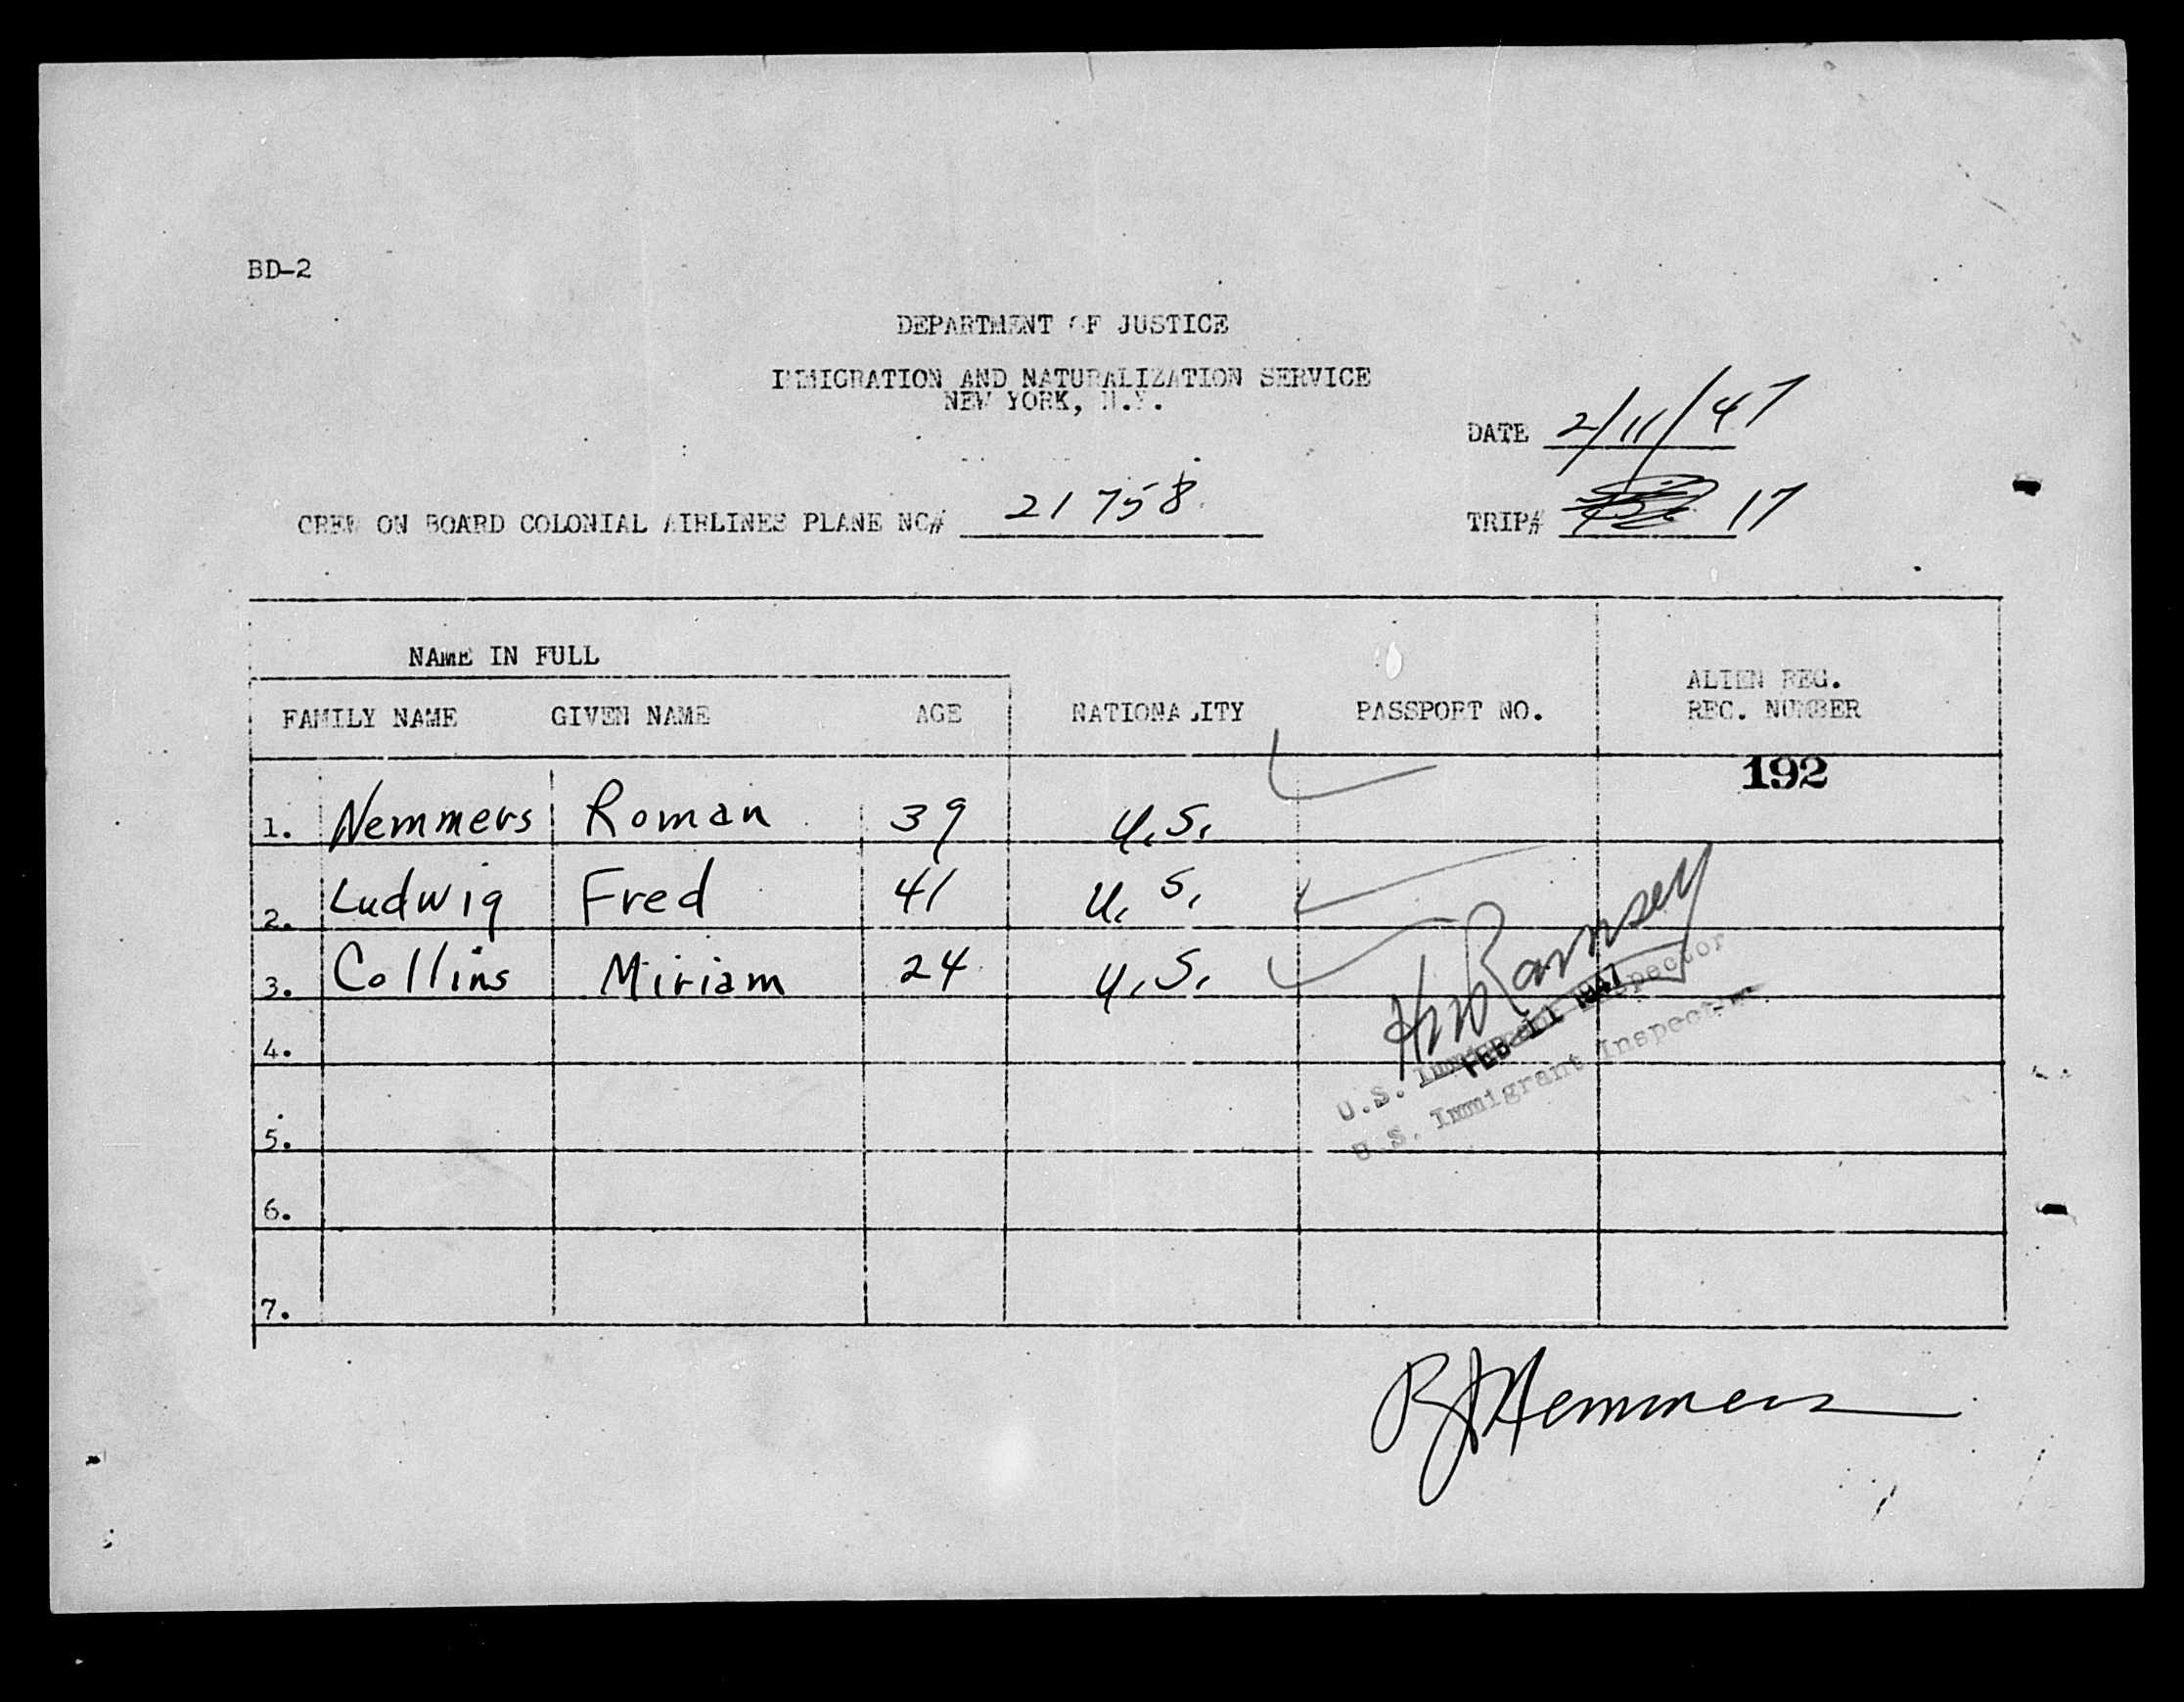 BD-2
DEPARTMENT OF JUSTICE
IMMIGRATION AND NATURALIZATION SERVICE
NEW YORK, N.Y.
DATE 2/11/47
CREW ON BOARD COLONIAL AIRLINES PLANE NC# 21758
TRIP# 17
NAME IN FULL
FAMILY NAME GIVEN NAME AGE NATIONALITY PASSPORT NO. ALIEN REG. REC. NUMBER
192
1. Nemmers Roman 39 U.S.
2. Ludwig Fred 41 U.S.
3. Collins Miriam 24 U.S.
Ramsey
FEB 11 1947
U.S. Immigrant Inspector
U.S. Immigrant Inspector
4.
5.
6.
7.
RJ Nemmers